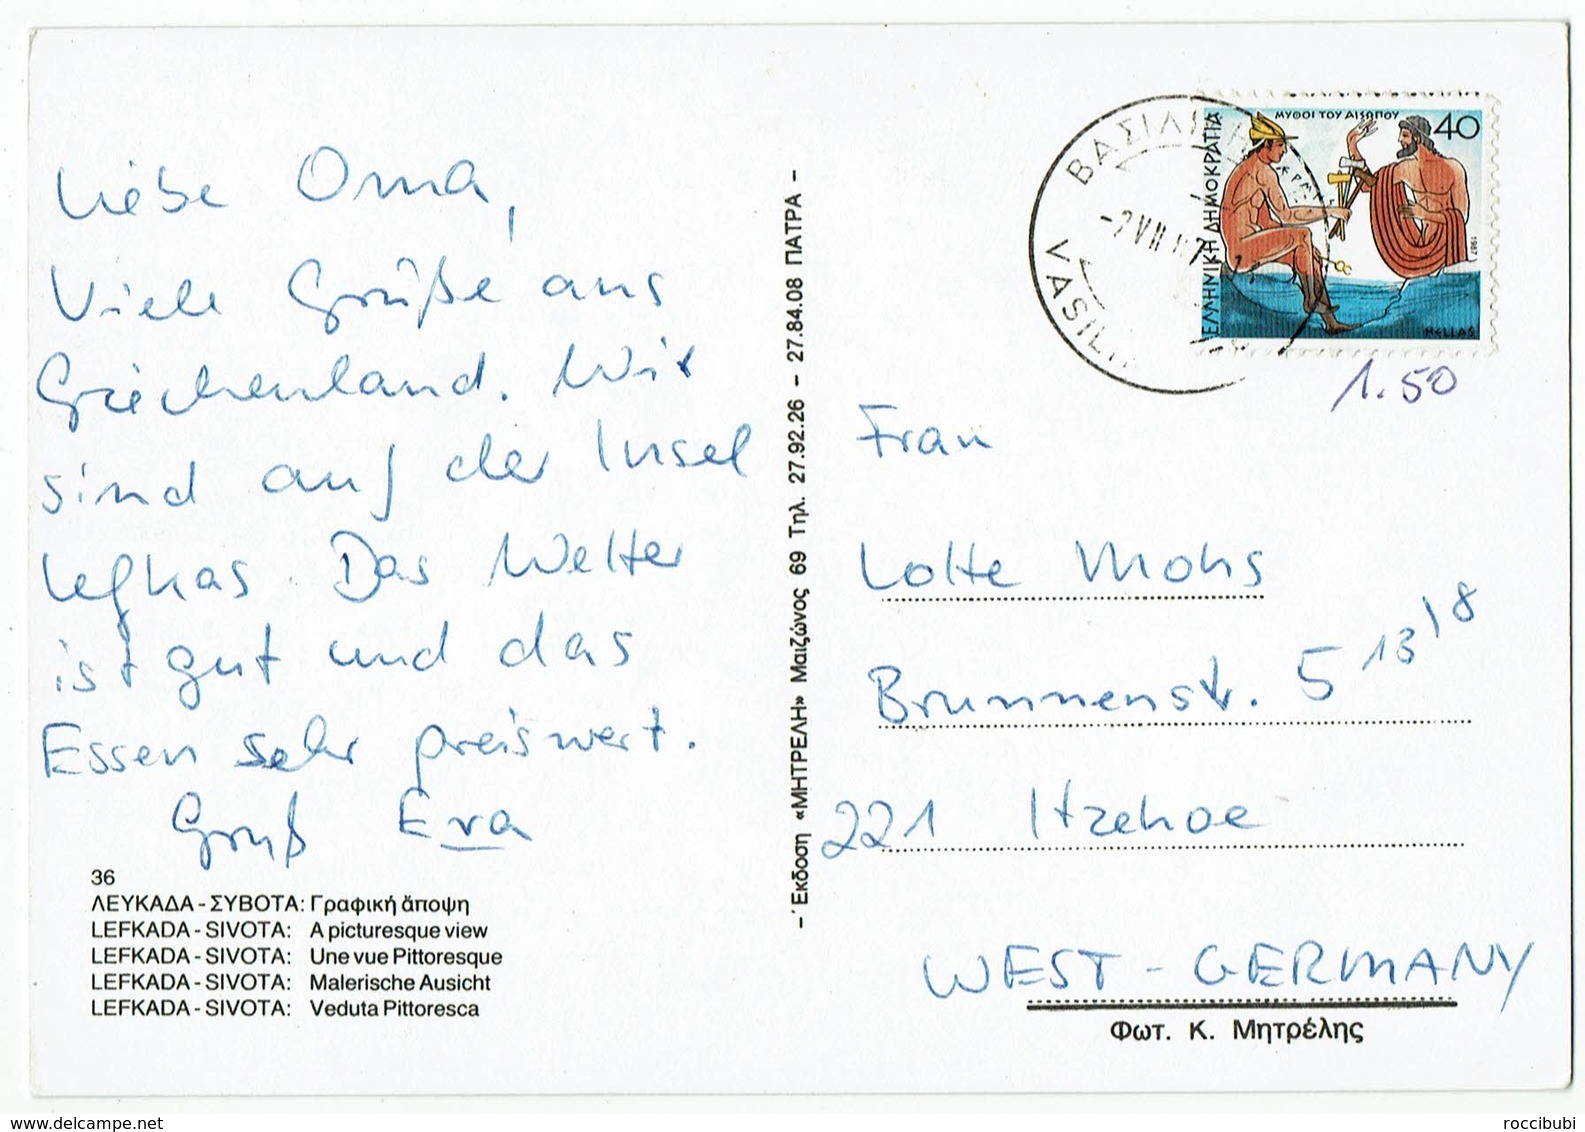 Liebe Oma,
Viele Grüße aus
Griechenland. Wir
sind auf der Insel
Lefkas. Das Wetter
ist gut und das
Essen sehr preiswert.
Gruß Eva
36
ΛΕΥΚΑΔΑ - ΣΥΒΟΤΑ: Γραφική ἄποψη
LEFKADA - SIVOTA: A picturesque view
LEFKADA - SIVOTA: Une vue Pittoresque
LEFKADA - SIVOTA: Malerische Ausicht
LEFKADA - SIVOTA: Veduta Pittoresca
– Ἔκδοση «ΜΗΤΡΕΛΗ» Μαιζώνος 69 Τηλ. 27.92.26 - 27.84.08 ΠΑΤΡΑ –
ΜΥΘΟΙ ΤΟΥ ΑΙΣΩΠΟΥ
40
ΕΛΛΗΝΙΚΗ ΔΗΜΟΚΡΑΤΙΑ
1987
HELLAS
1.50
Frau
Lotte Mohs
Brunnenstr. 5 13/8
221 Itzehoe
WEST - GERMANY
Φωτ. Κ. Μητρέλης
www.delcampe.net
roccibubi